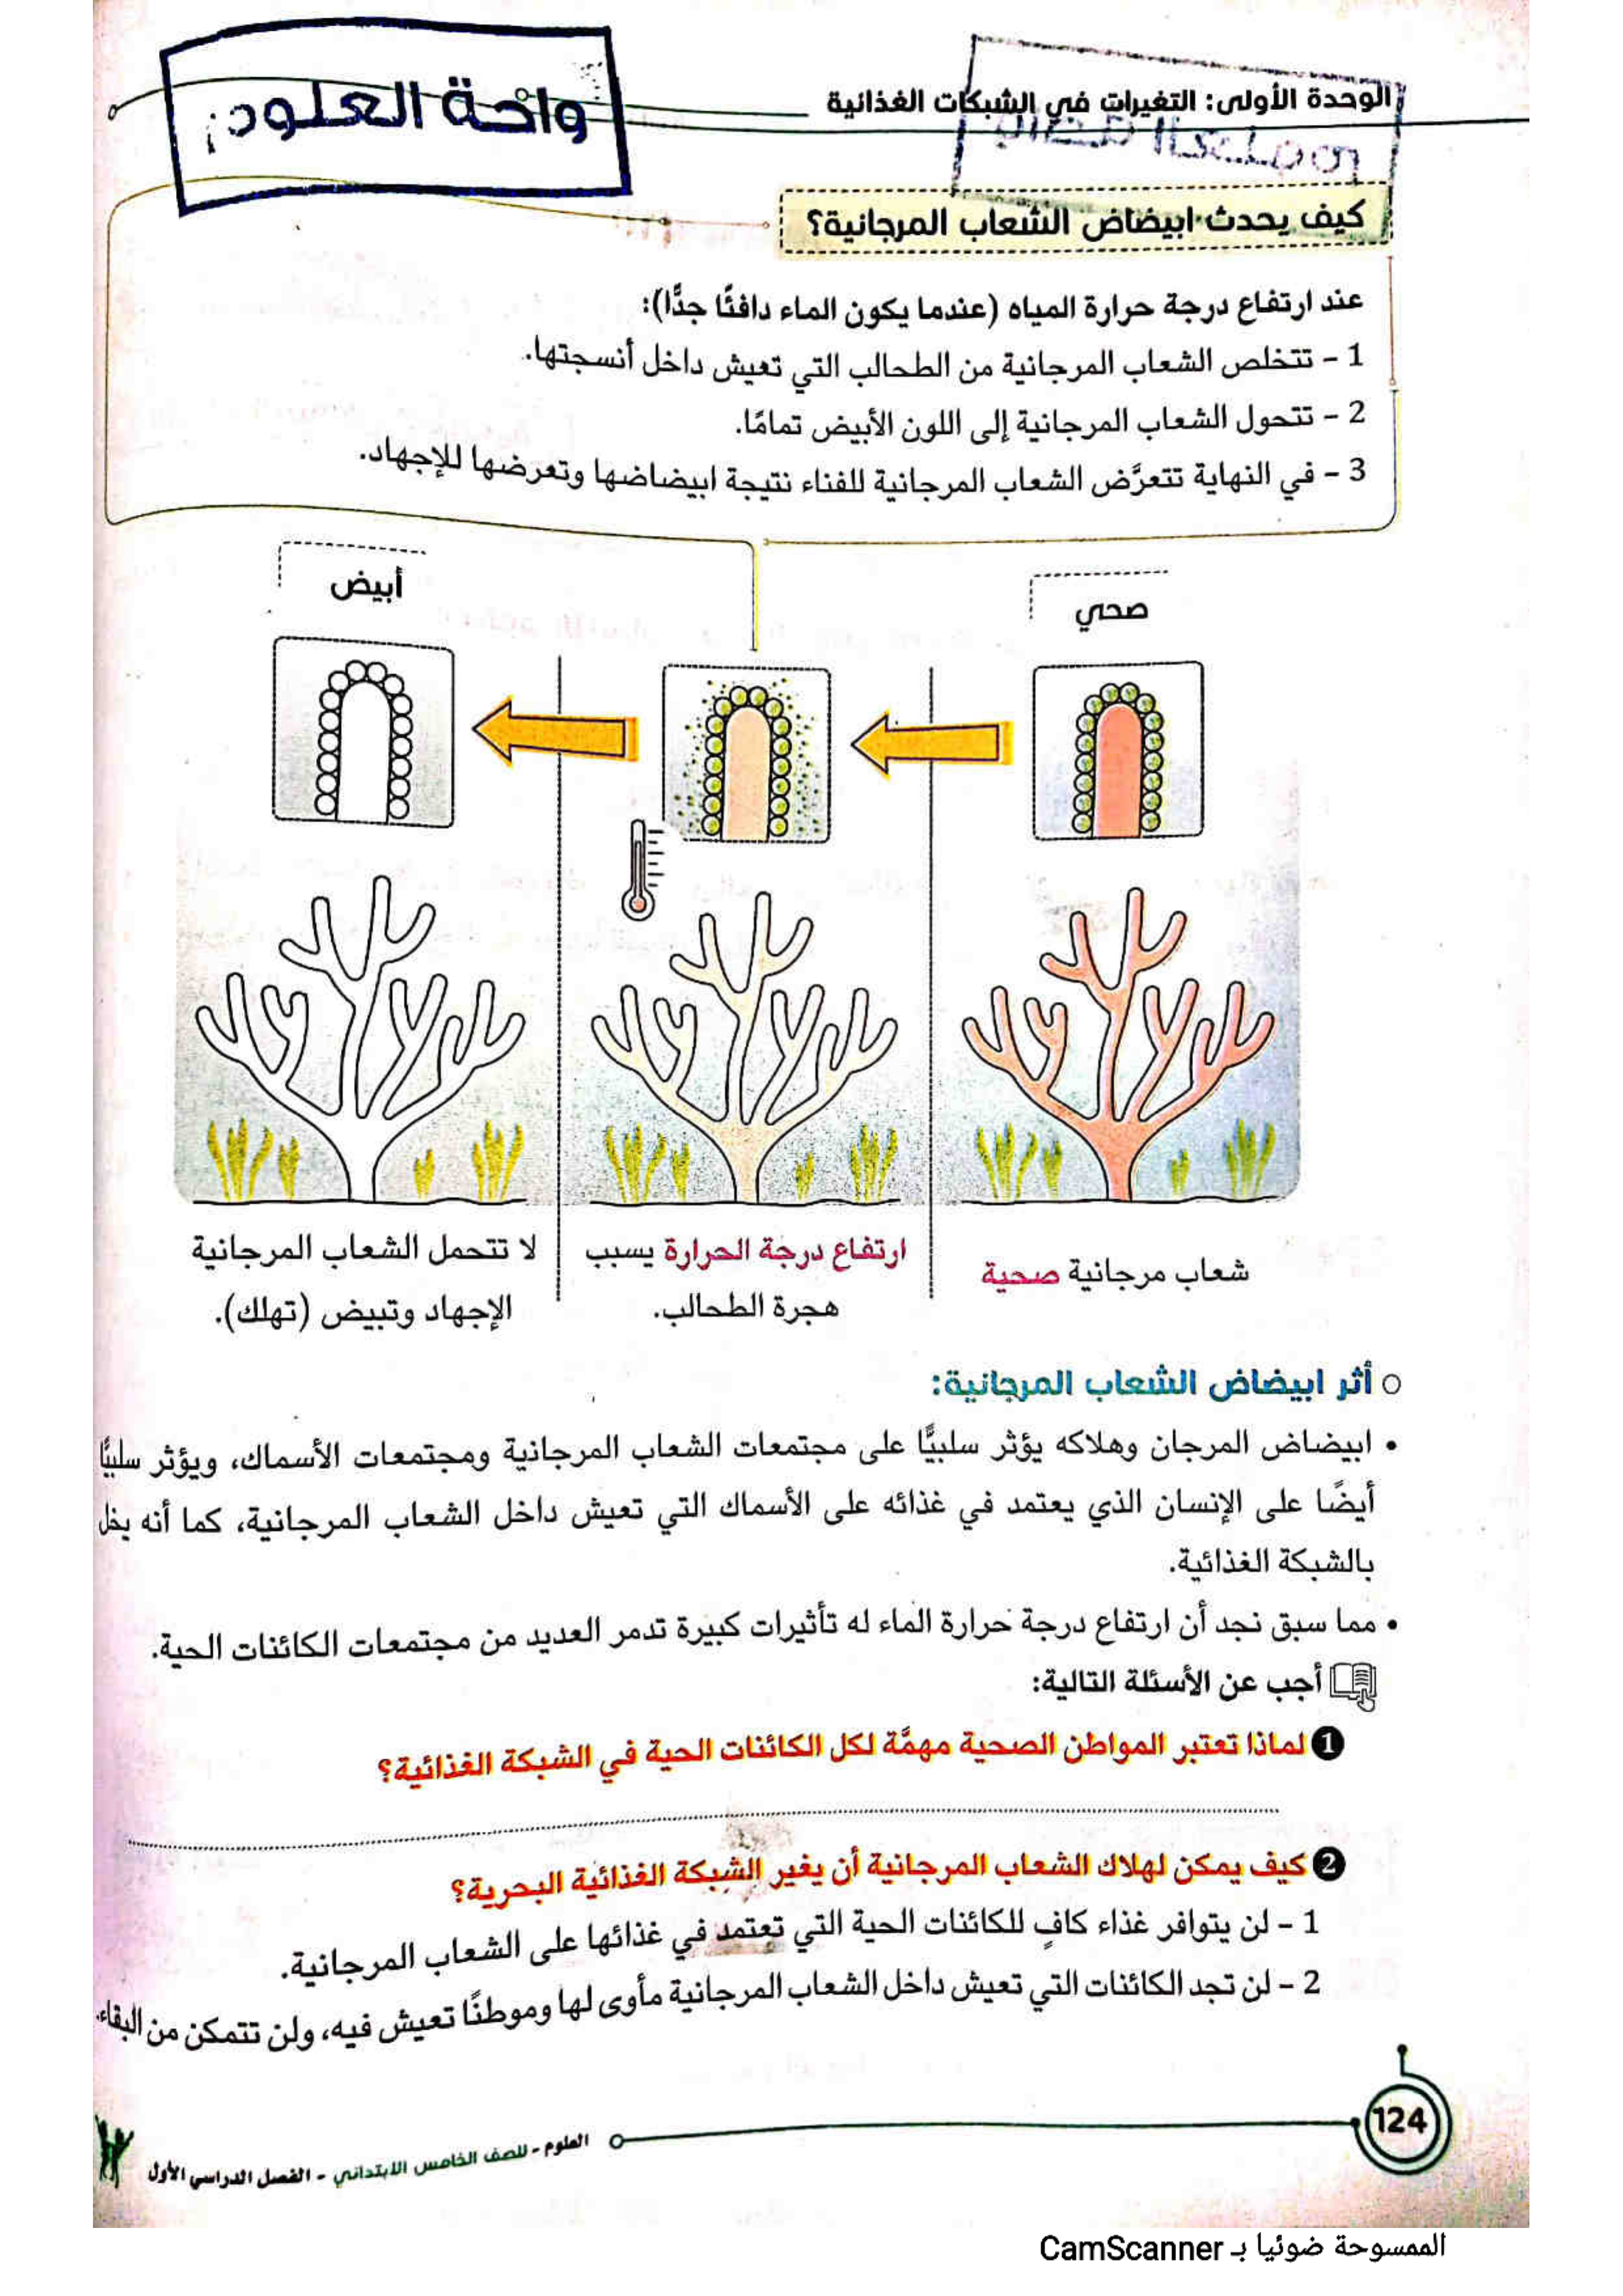 الوحدة الأولى: التغيرات في الشبكات الغذائية
واحة العلوم
كيف يحدث ابيضاض الشعاب المرجانية؟
عند ارتفاع درجة حرارة المياه (عندما يكون الماء دافئًا جدًّا):
1 - تتخلص الشعاب المرجانية من الطحالب التي تعيش داخل أنسجتها.
2 - تتحول الشعاب المرجانية إلى اللون الأبيض تمامًا.
3 - في النهاية تتعرَّض الشعاب المرجانية للفناء نتيجة ابيضاضها وتعرضها للإجهاد.
صحي
أبيض
شعاب مرجانية صحية
ارتفاع درجة الحرارة يسبب
هجرة الطحالب.
لا تتحمل الشعاب المرجانية
الإجهاد وتبيض (تهلك).
أثر ابيضاض الشعاب المرجانية:
• ابيضاض المرجان وهلاكه يؤثر سلبيًّا على مجتمعات الشعاب المرجانية ومجتمعات الأسماك، ويؤثر سلبيًّا
أيضًا على الإنسان الذي يعتمد في غذائه على الأسماك التي تعيش داخل الشعاب المرجانية، كما أنه يخل
بالشبكة الغذائية.
• مما سبق نجد أن ارتفاع درجة حرارة الماء له تأثيرات كبيرة تدمر العديد من مجتمعات الكائنات الحية.
أجب عن الأسئلة التالية:
1 لماذا تعتبر المواطن الصحية مهمَّة لكل الكائنات الحية في الشبكة الغذائية؟
2 كيف يمكن لهلاك الشعاب المرجانية أن يغير الشبكة الغذائية البحرية؟
1 - لن يتوافر غذاء كافٍ للكائنات الحية التي تعتمد في غذائها على الشعاب المرجانية.
2 - لن تجد الكائنات التي تعيش داخل الشعاب المرجانية مأوى لها وموطنًا تعيش فيه، ولن تتمكن من البقاء.
124
العلوم - للصف الخامس الابتدائي - الفصل الدراسي الأول
الممسوحة ضوئيا بـ CamScanner